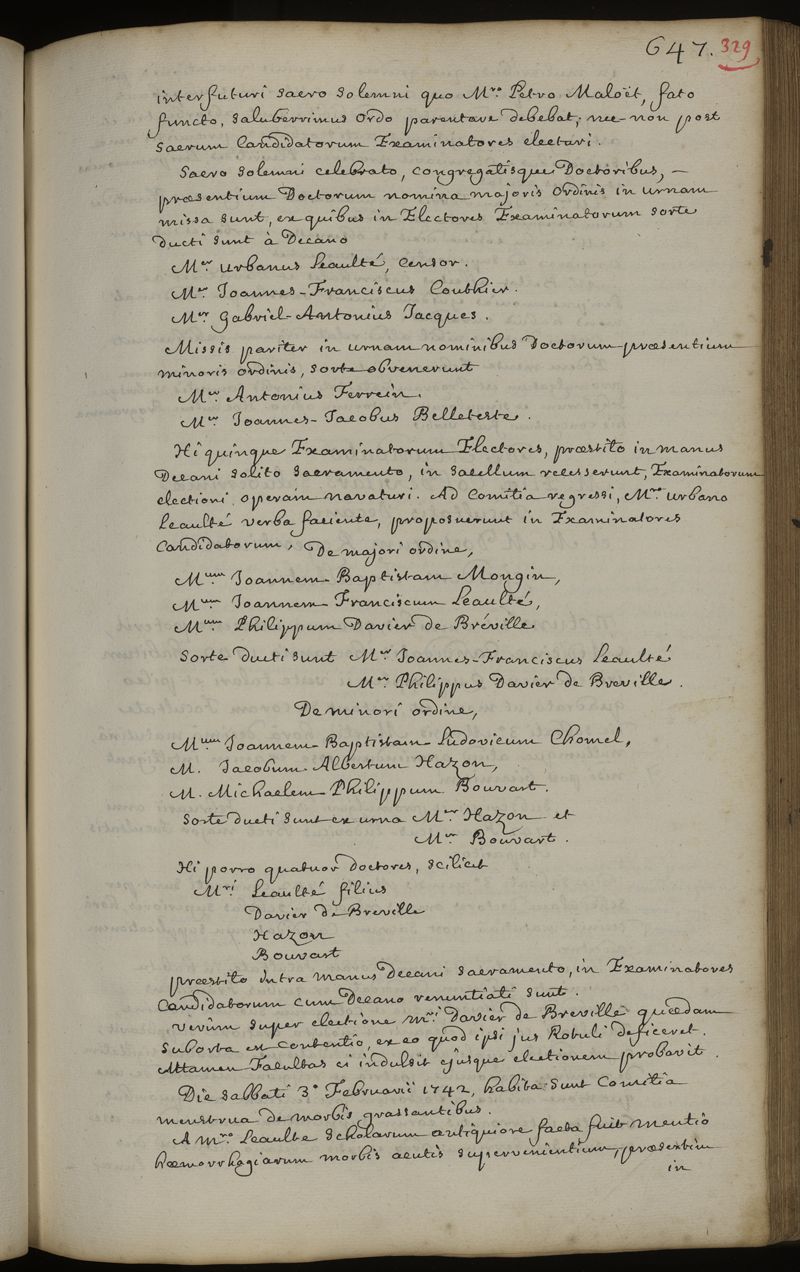 647. 329
interfuturi sacro solemni quo M.ro Petro Maloët, fato
functo, saluberrimus ordo parentare debebat; nec-non post
sacrum Candidatorum Examinatores electuri.
Sacro solemni celebrato, congregatisque Doctoribus, –
præsentium Doctorum nomina majoris ordinis in urnam
missa sunt, ex quibus in Electores Examinatorum sorte
ducti sunt à Decano
M.er Urbanus Leaulté, Censor.
M.er Joannes-Franciscus Couthier.
M.er Gabriel-Antonius Jacques.
Missis pariter in urnam nominibus Doctorum præsentium
minoris ordinis, sorte obvenerunt
M.er Antonius Ferrein.
M.er Joannes-Jacobus Belleteste.
Hi quinque Examinatorum Electores, præstito in manus
Decani solito sacramento, in sacellum recesserunt, Examinatorum
electioni operam navaturi. Ad Comitia regressi, M.ro Urbano
Leaulté verba faciente, proposuerunt in Examinatores
Candidatorum, De majori ordine,
M.um Joannem-Baptistam Mongin,
M.um Joannem-Franciscum Leaulté,
M.um Philippum Davier de Bréville
Sorte ducti sunt M.er Joannes-Franciscus Leaulté
M.er Philippus Davier de Breville.
De minori ordine,
M.um Joannem-Baptistam-Ludovicum Chomel,
M. Jacobum-Albertum Hazon,
M. Michaelem-Philippum Bouvart.
Sorte ducti sunt ex urna M.er Hazon et
M.er Bouvart.
Hi porro quatuor doctores, scilicet
M.ri Leaulté filius
Davier de Breville
Hazon
Bouvart
præstito intra manus Decani sacramento, in Examinatores
Candidatorum cum Decano renuntiati sunt.
Verùm super electione M.ri Davier de Breville quædam
suborta est contentio, ex eo quod ipsi jus Rotuli deficeret.
Attamen Facultas ei indulsit ejusque electionem probavit.
Die sabbati 3.a Februarii 1742, habita sunt Comitia
menstrua de morbis grassantibus.
A M.ro Leaulte Scholarum antiquiore facta fuit mentio
hæmorrhagiarum morbis acutis supervenientium, præsertim
in